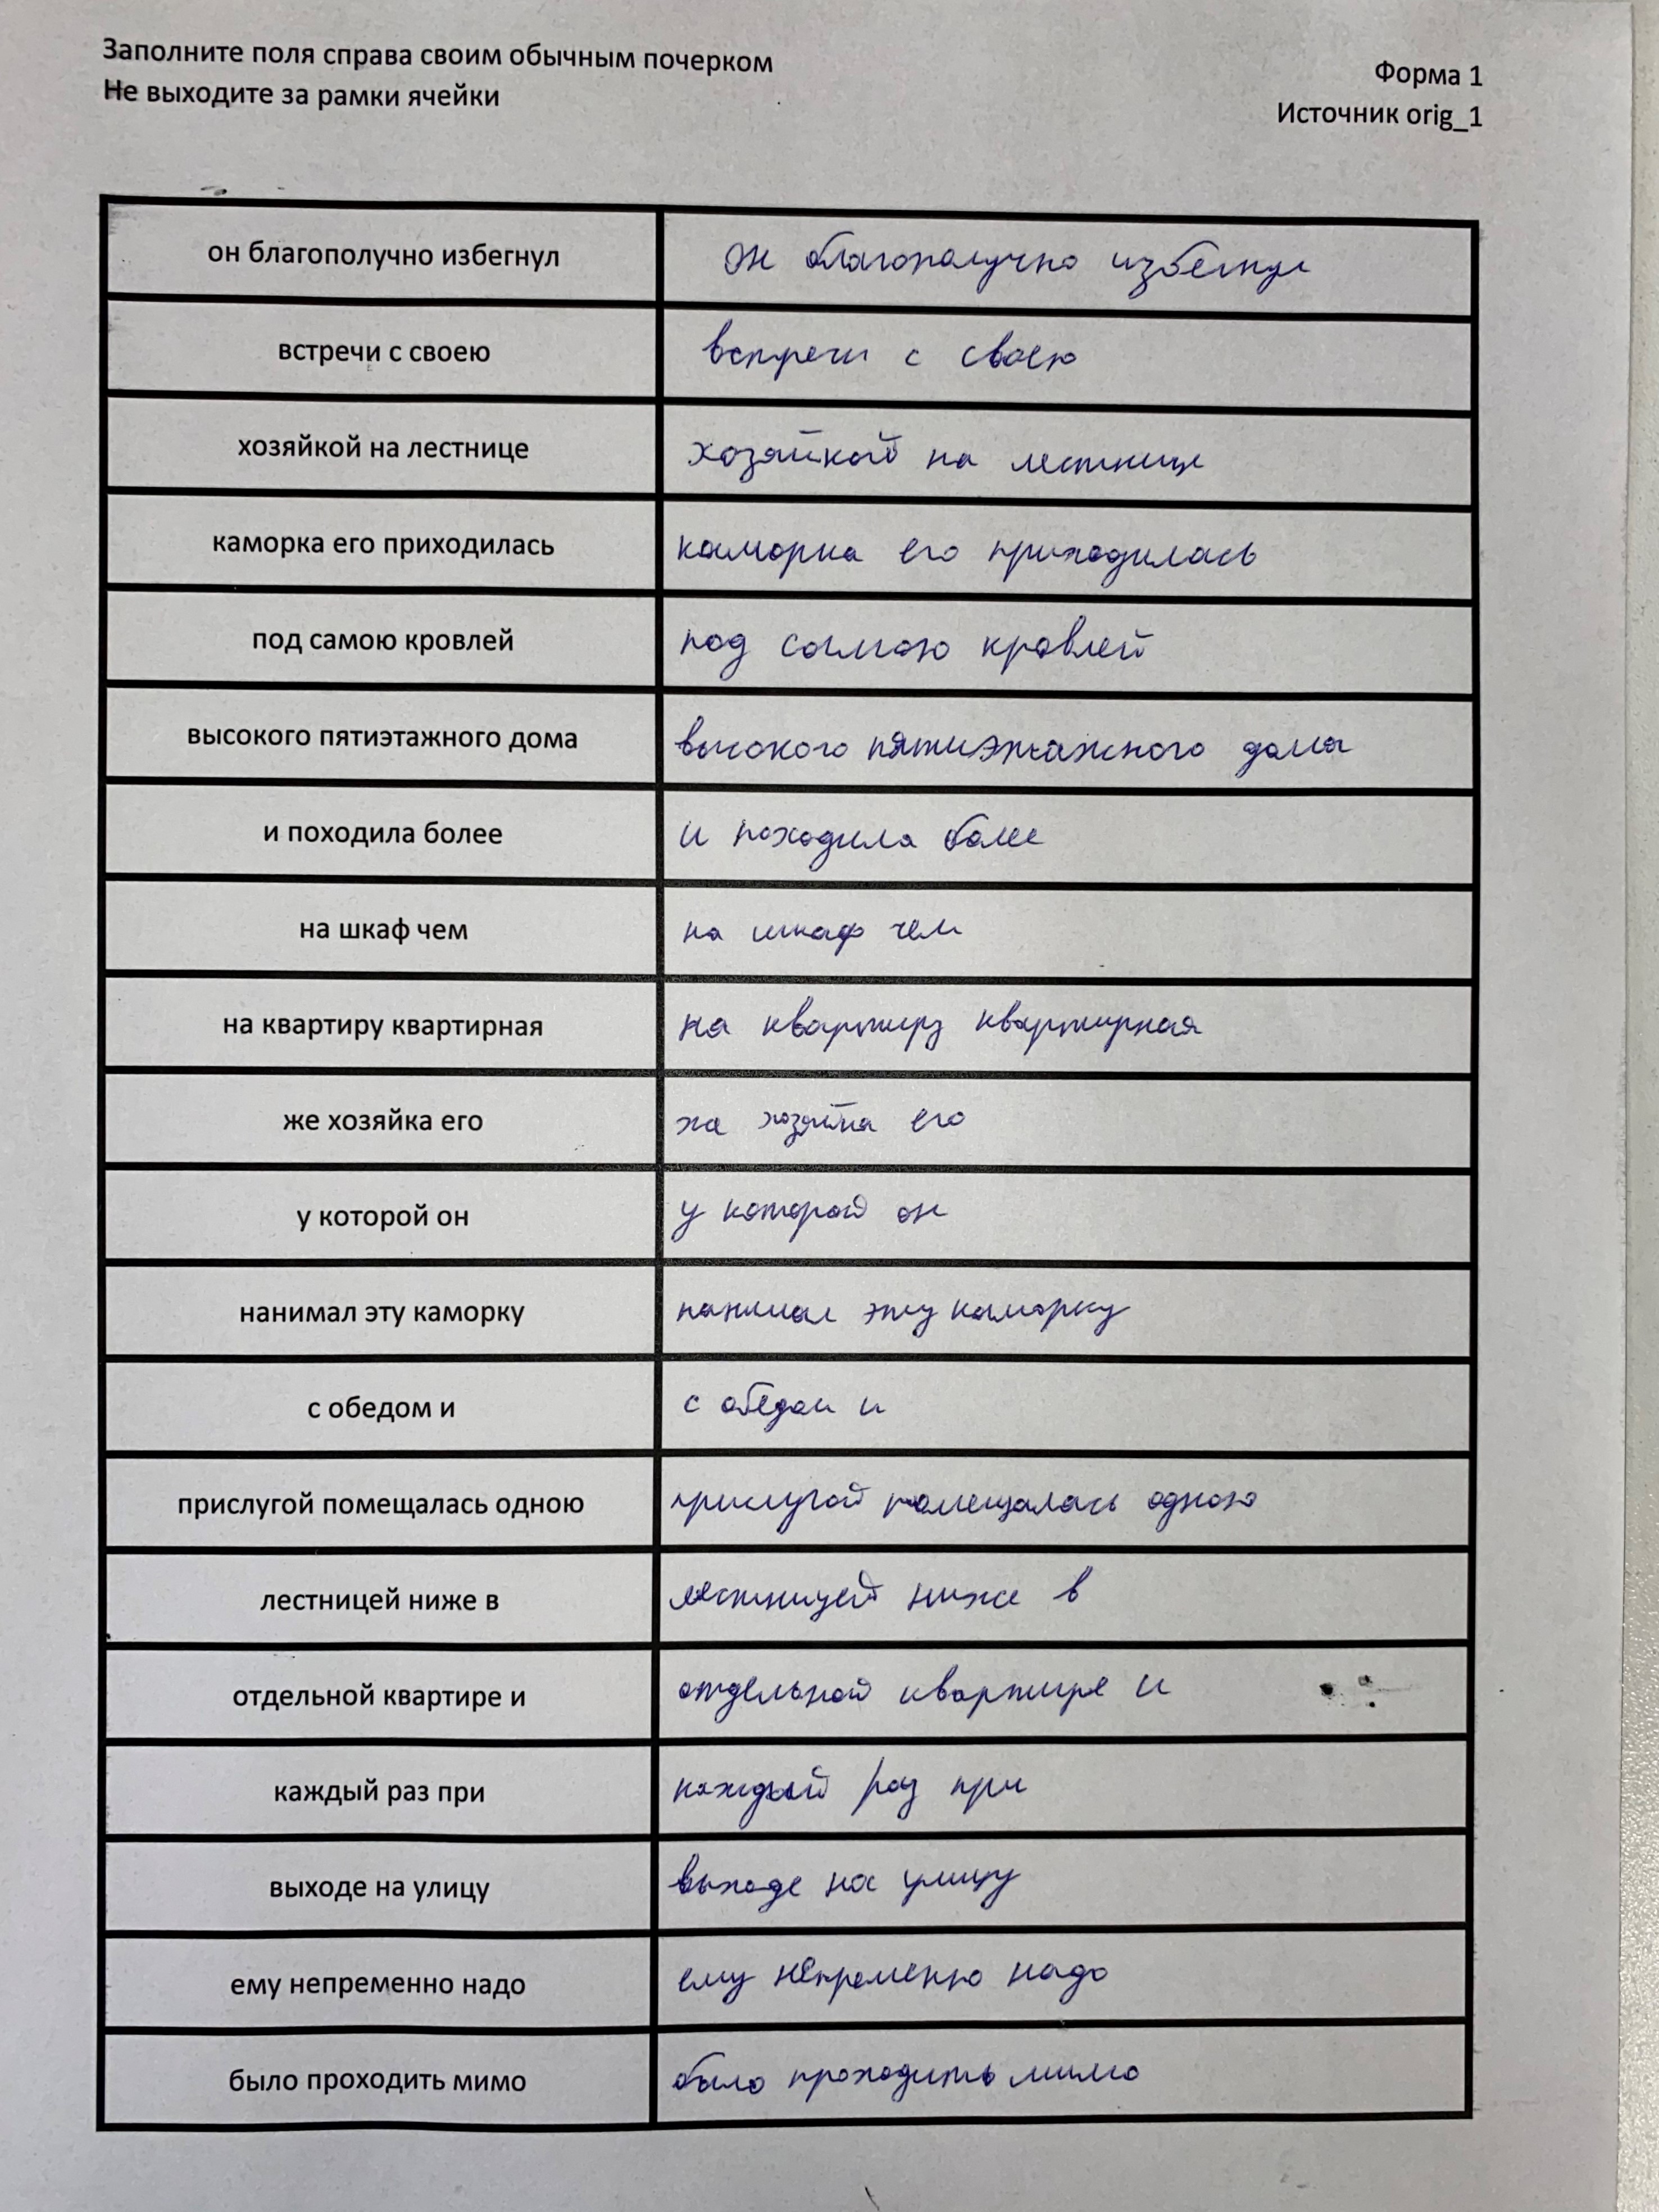 Заполните поля справа своим обычным почерком
Не выходите за рамки ячейки
Форма 1
Источник orig_1
он благополучно избегнул он благополучно избегнул
встречи с своею встречи с своею
хозяйкой на лестнице хозяйкой на лестнице
каморка его приходилась каморка его приходилась
под самою кровлей под самою кровлей
высокого пятиэтажного дома высокого пятиэтажного дома
и походила более и походила более
на шкаф чем на шкаф чем
на квартиру квартирная на квартиру квартирная
же хозяйка его же хозяйка его
у которой он у которой он
нанимал эту каморку нанимал эту каморку
с обедом и с обедом и
прислугой помещалась одною прислугой помещалась одною
лестницей ниже в лестницей ниже в
отдельной квартире и отдельной квартире и
каждый раз при каждый раз при
выходе на улицу выходе на улицу
ему непременно надо ему непременно надо
было проходить мимо было проходить мимо